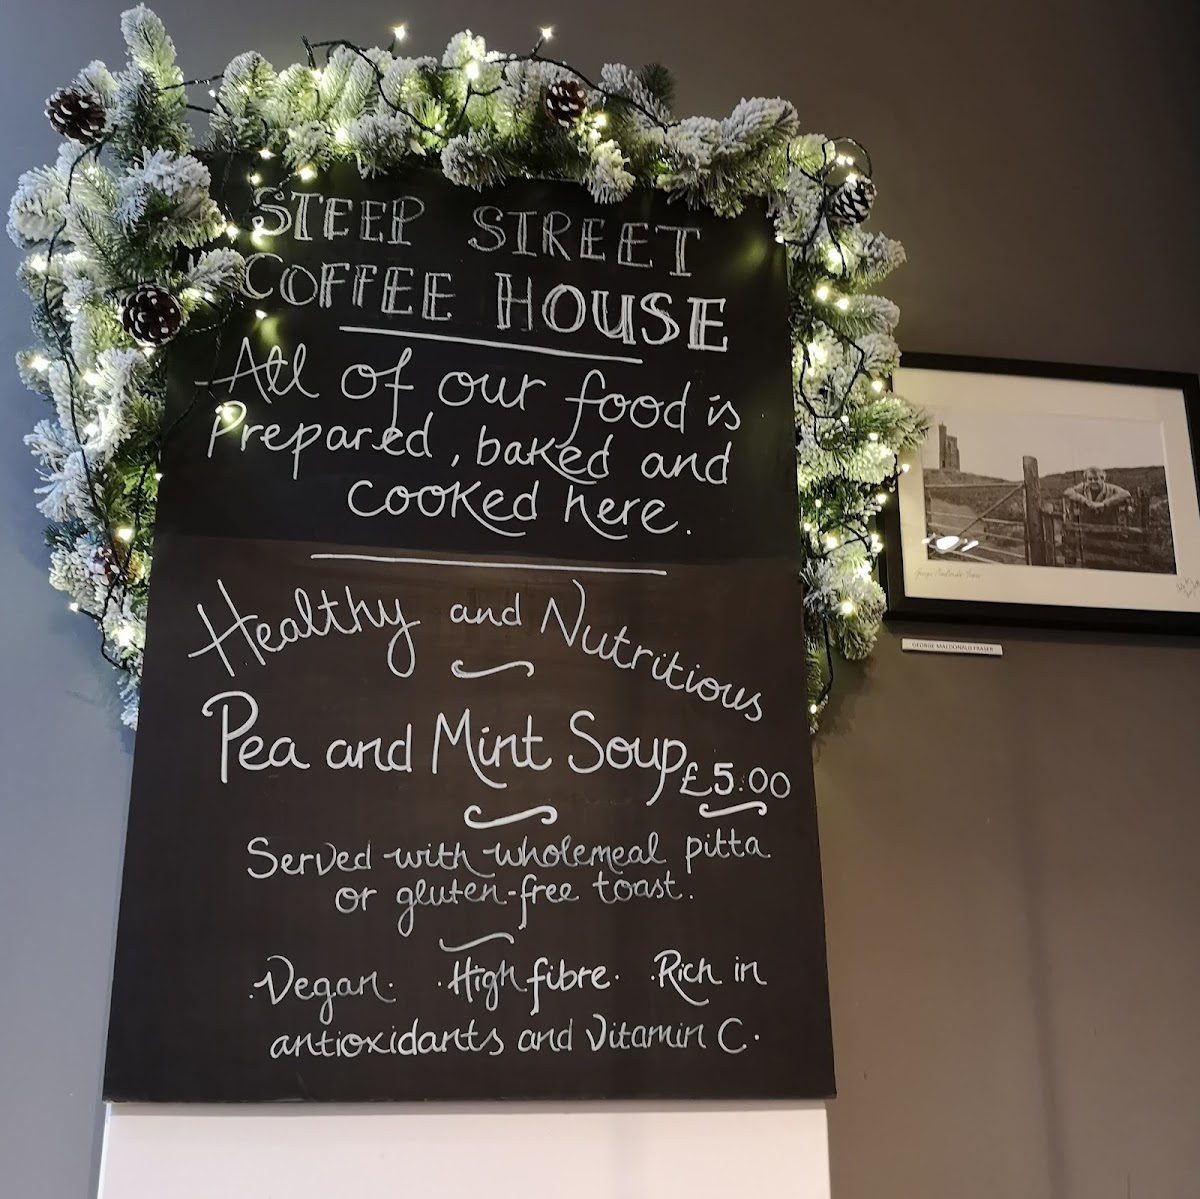 STEEP STREET
COFFEE HOUSE
All of our food is
Prepared, baked and
cooked here.
Healthy and Nutritious
Pea and Mint Soup £5.00
Served with wholemeal pitta
or gluten-free toast.
·Vegan· ·High fibre· ·Rich in
antioxidants and Vitamin C·
GEORGE MACDONALD FRASER